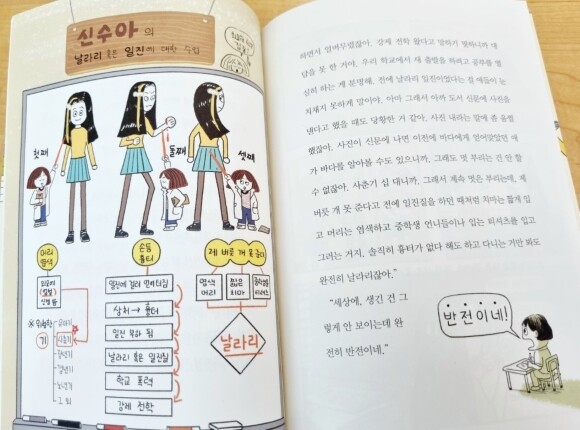 신수아의
날라리 혹은 일진에 대한 수업
첫째
둘째
셋째
머리
염색
손등
흉터
제 버릇 개 못 준다
일진에 걸려 면터질
상처 → 흉터
일진 부하 됨
날라리 혹은 일진질
학교 폭력
강제 전학
염색
머리
짧은
치마
날라리
※ 위험한
기
유아기
사춘기
하면서 얼버무렸잖아. 강제 전학 왔다고 말하기 쪽팔리니까 대
답을 못 한 거야. 우리 학교에서 새 출발을 하려고 공부를 열
심히 하는 게 분명해. 전에 날라리 일진이었다는 걸 애들이 눈
치채지 못하게 말이야. 아마 그래서 아까 도서 신문에 사진을
낸다고 했을 때도 당황한 거 같아. 사진 내라는 말에 좀 울컥
했잖아. 사진이 신문에 나면 이전에 바다에게 얻어맞았던 애
가 바다를 알아볼 수도 있으니까. 그래도 멋 부리는 건 한 할
수 없잖아. 사춘기 십 대니까. 그래서 계속 멋은 부리는데, 제
버릇 개 못 준다고 전에 일진질을 하던 때처럼 치마는 짧게 입
고 머리는 염색하고 중학생 언니들이나 입는 티셔츠를 입고
그러는 거지. 솔직히 흉터가 없다 해도 하고 다니는 거만 봐도
완전히 날라리잖아."
"세상에, 생긴 건 그
렇게 안 보이는데 완
전히 반전이네."
반전이네!